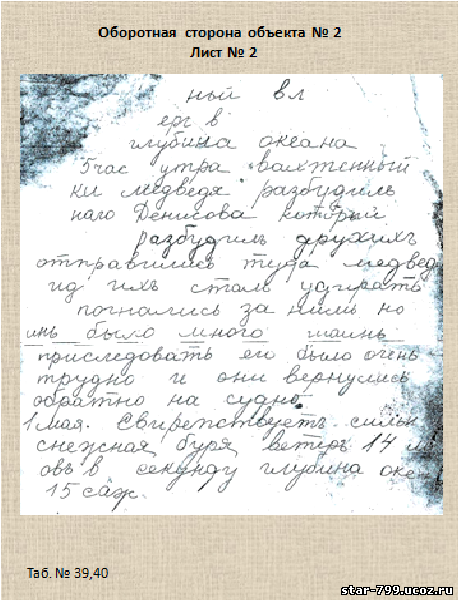 Оборотная сторона объекта № 2
Лист № 2
ный вл
ерг в
глубина океана
5 час утра вахтенный
ки медведя разбудилъ
наго Денисова который
разбудилъ другихъ
отправились туда медвед
ид ихъ сталъ удирать
погнались за нимъ но
инь было много
приследовать его было очень
трудно и они вернулись
обратно на судно
1 мая. Свирепствуетъ сильн
снежная буря ветеръ 14 м
овъ в секунду глубина оке
15 саж.
Таб. № 39,40
star-799.ucoz.ru